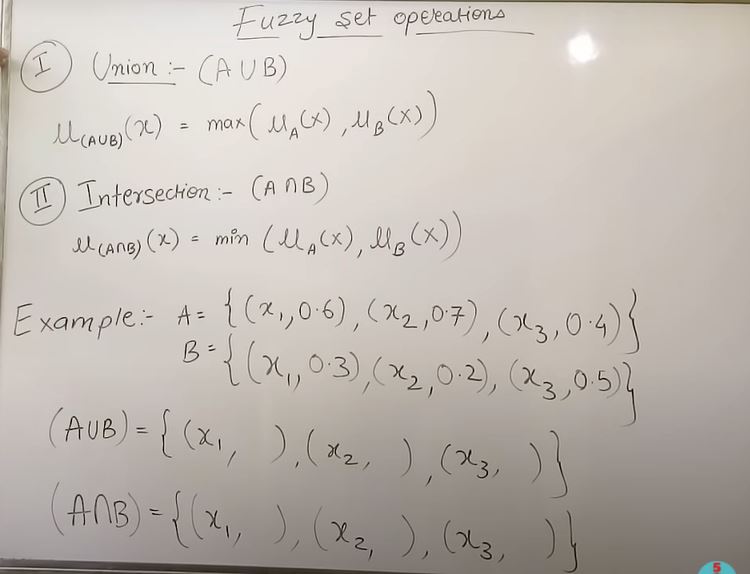 Fuzzy set operations
I Union :- (A ∪ B)
μ(A∪B)(x) = max(μA(x), μB(x))
II Intersection :- (A ∩ B)
μ(A∩B)(x) = min (μA(x), μB(x))
Example:- A = {(x1, 0.6), (x2, 0.7), (x3, 0.4)}
B = {(x1, 0.3), (x2, 0.2), (x3, 0.5)}
(A∪B) = {(x1, ), (x2, ), (x3, )}
(A∩B) = {(x1, ), (x2, ), (x3, )}
5